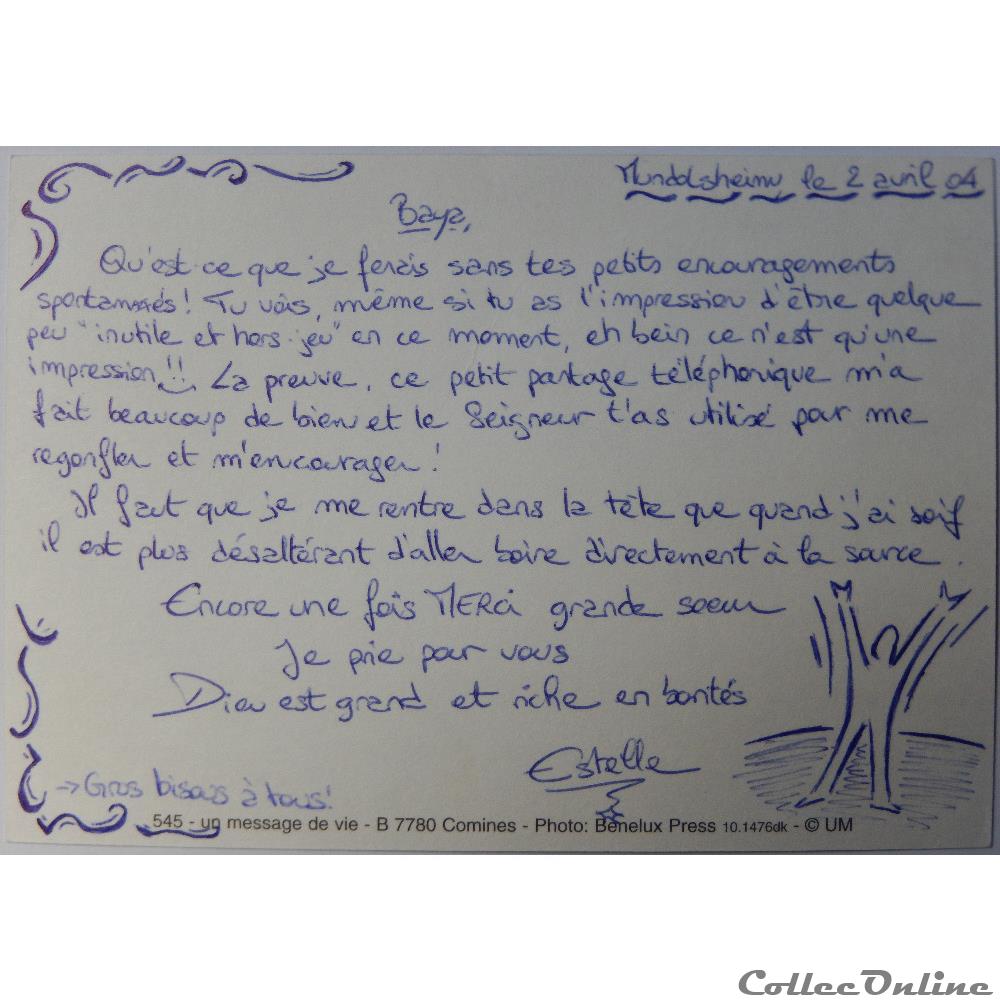 Mundolsheim, le 2 avril 04
Baya,
Qu'est-ce que je ferais sans tes petits encouragements
spontannés! Tu vois, même si tu as l'impression d'être quelque
peu "inutile et hors-jeu" en ce moment, eh bein ce n'est qu'une
impression!! La preuve, ce petit partage téléphonique m'a
fait beaucoup de bien et le Seigneur t'as utilisé pour me
regonfler et m'encourager!
Il faut que je me rentre dans la tête que quand j'ai soif
il est plus désaltérant d'aller boire directement à la source.
Encore une fois MERCi grande soeur
Je prie pour vous
Dieu est grand et riche en bontés
Estelle
→ Gros bisous à tous!
545 - un message de vie - B 7780 Comines - Photo: Benelux Press 10.1476dk - © UM
CollecOnline